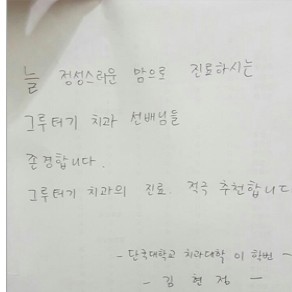 늘 정성스러운 맘으로 진료하시는
그루터기 치과 선배님들
존경합니다.
그루터기 치과의 진료. 적극 추천합니다
- 단국대학교 치과대학 이 학번 -
- 김현정 -